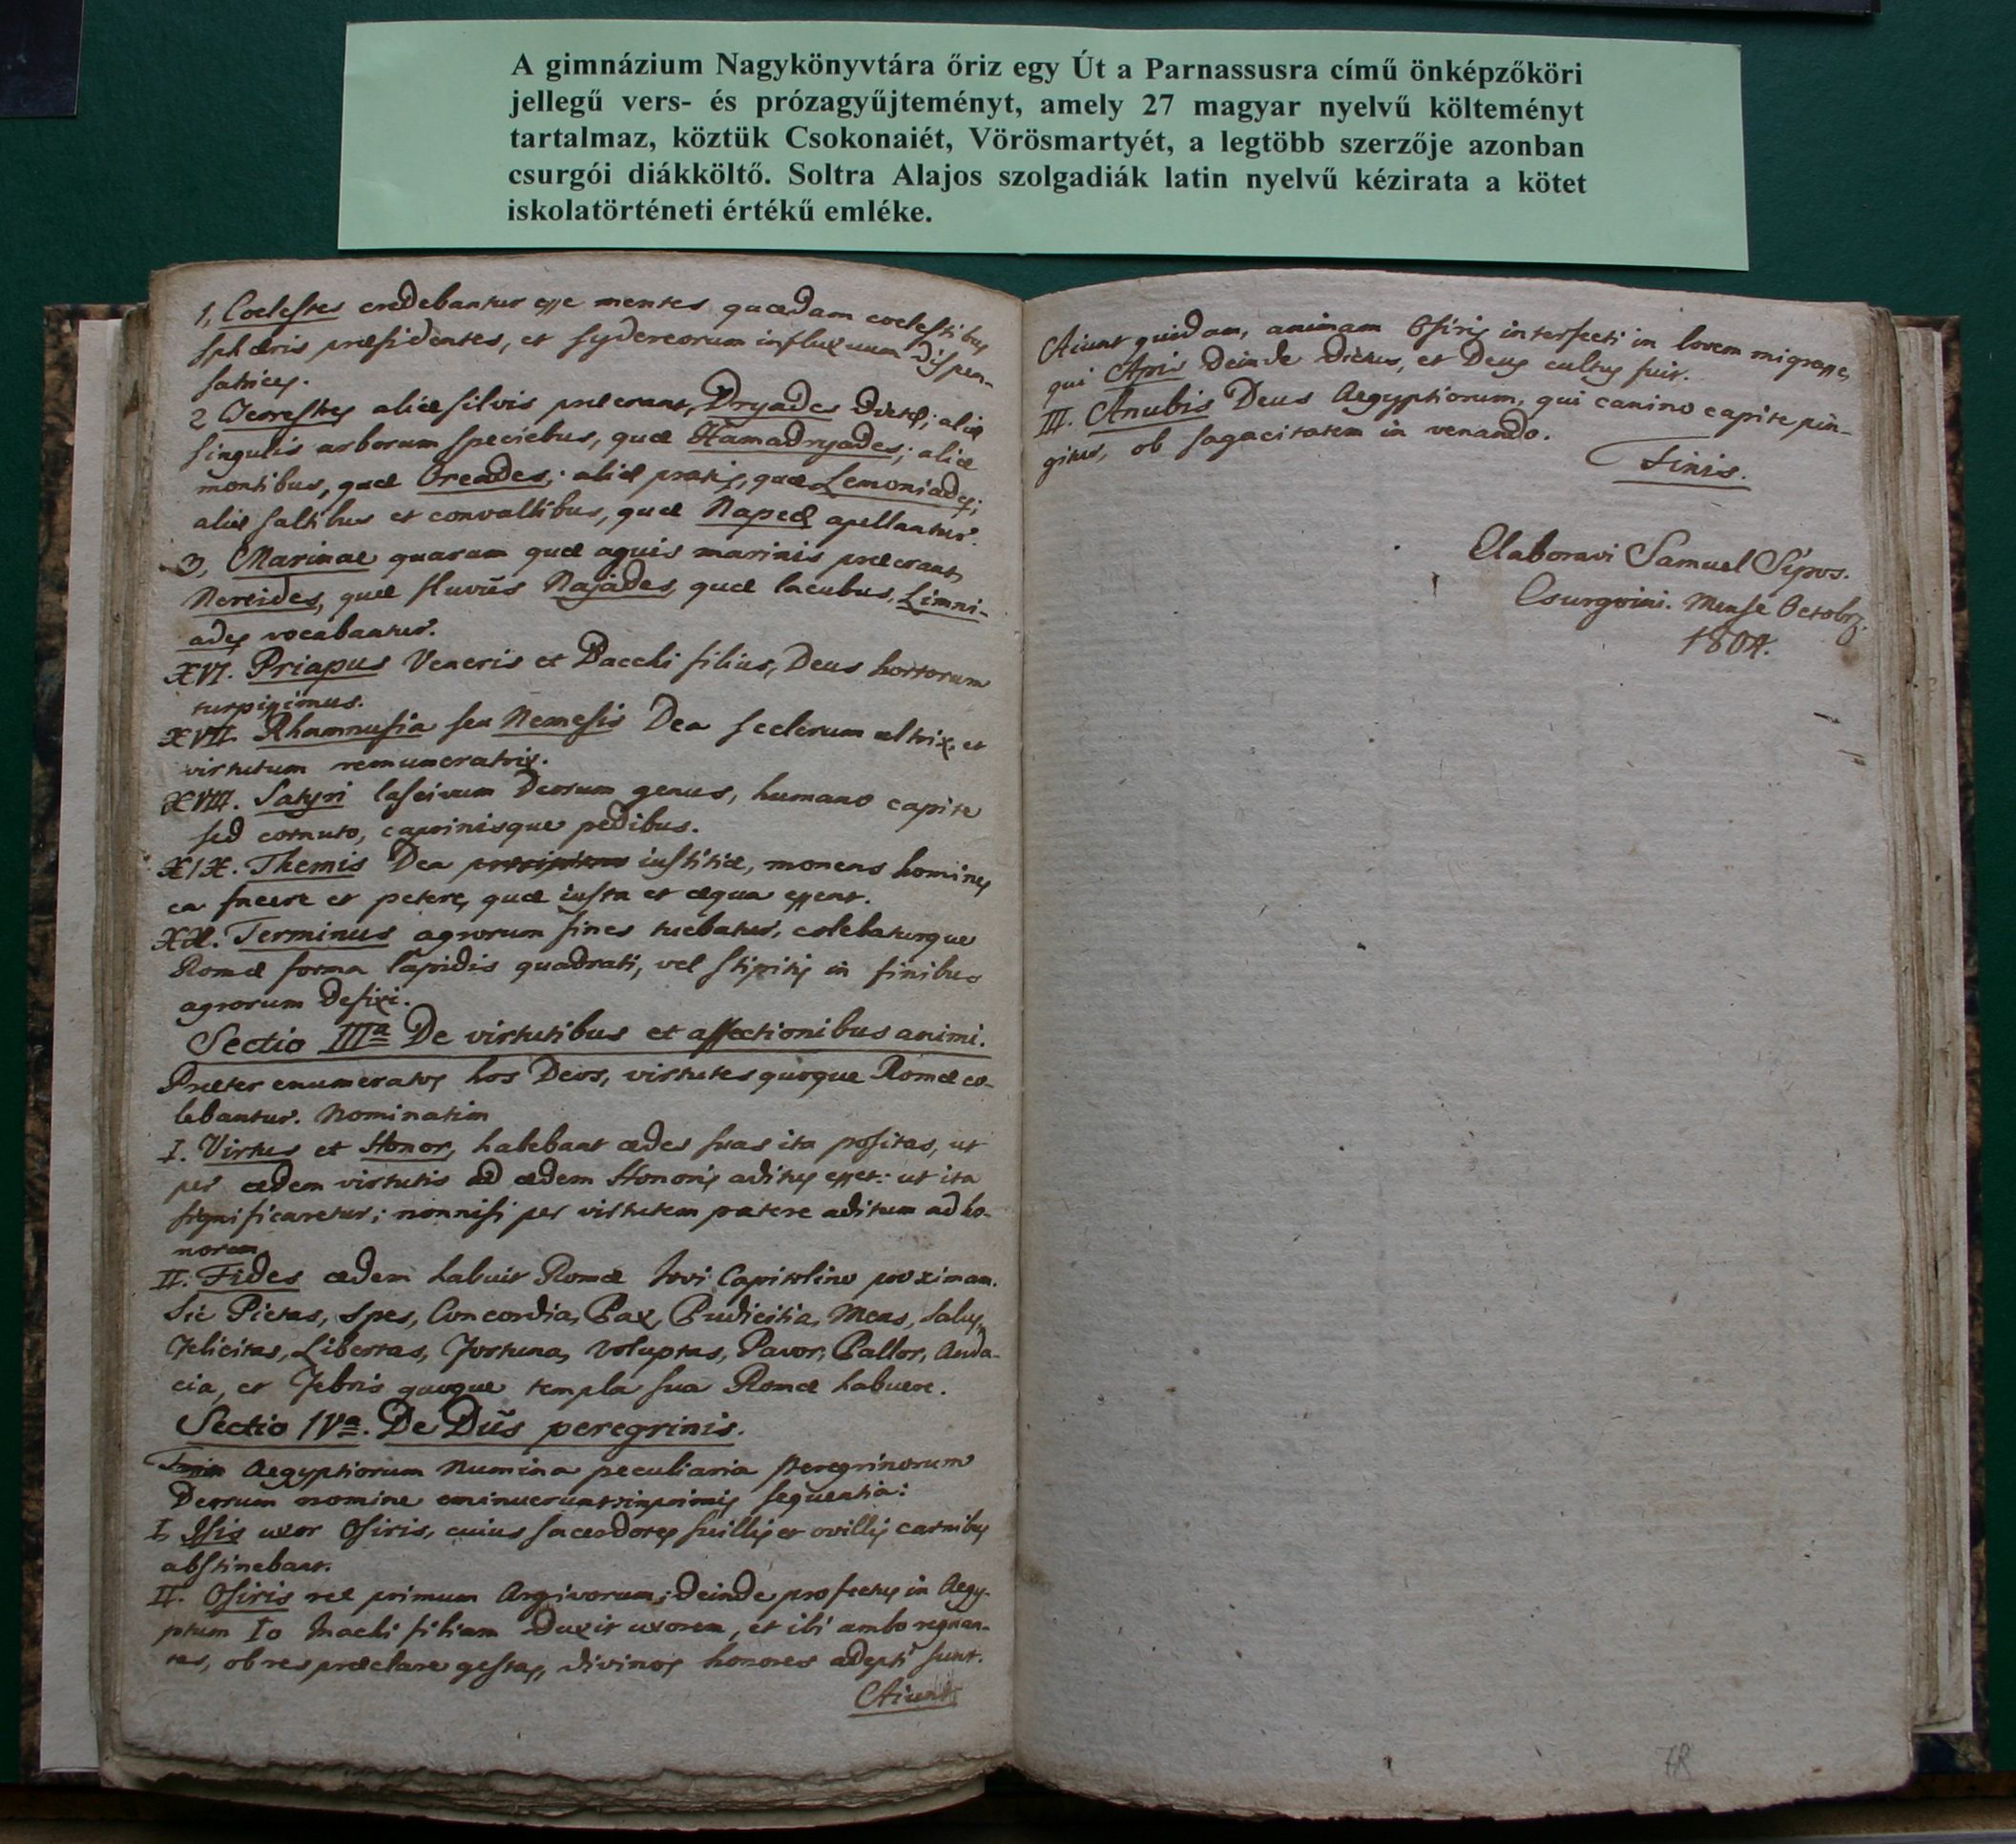 A gimnázium Nagykönyvtára őriz egy Út a Parnassusra című önképzőköri
jellegű vers- és prózagyűjteményt, amely 27 magyar nyelvű költeményt
tartalmaz, köztük Csokonaiét, Vörösmartyét, a legtöbb szerzője azonban
csurgói diákköltő. Soltra Alajos szolgadiák latin nyelvű kézirata a kötet
iskolatörténeti értékű emléke.
1, Coelestes credebantur esse mentes quædam coelestibus
sphæris præsidentes, et sydereorum influxuum dispen-
satrices.
2 aliæ silvis præerant, Dryades dictæ; aliæ
singulis arborum speciebus, quæ Hamadryades; aliæ
montibus, quæ Oreades; aliæ pratis, quæ Lemoniades;
aliæ saltibus et convallibus, quæ Napeæ apellantur.
3, Marinae quarum quæ aquis marinis præerant,
Nereides, quæ fluviis Najades, quæ lacubus, Limni-
ades vocabantur.
XVI. Priapus Veneris et Bacchi filius, Deus hortorum
turpissimus.
XVII. Rhamnusia seu Nemesis Dea scelerum ultrix, et
virtutum remuneratrix.
XVIII. Satyri lascivum Deorum genus, humano capite
sed cornuto, caprinisque pedibus.
XIX. Themis Dea iustitiæ, monens homines
ea facere et petere, quæ iusta et æqua essent.
XX. Terminus agrorum fines tuebatur, colebaturque
Romæ forma lapidis quadrati, vel stipitis in finibus
agrorum defixi.
Sectio IIIa De virtutibus et affectionibus animi.
Præter enumeratos hos Deos, virtutes quoque Romæ co-
lebantur. Nominatim
I. Virtus et Honor, habebant ædes suas ita positas, ut
per ædem virtutis ad ædem Honoris aditus esset: ut ita
significaretur; nonnisi per virtutem patere aditum ad ho-
norem
II. Fides ædem habuit Romæ Iovi Capitolino proximam.
Sic Pietas, Spes, Concordia, Pax, Pudicitia, Mens, Salus,
Felicitas, Libertas, Fortuna, Voluptas, Pavor, Pallor, Auda-
cia, et Febris quoque templa sua Romæ habuere.
Sectio IVa. De Diis peregrinis.
Aegyptiorum Numina peculiaria peregrinorum
Deorum nomine eminuerunt inprimis sequentia:
I, Isis uxor Osiris, cuius sacerdotes suillis et ovillis carnibus
abstinebant.
II. Osiris rex primum Argivorum; deinde profectus in Aegy-
ptum Io Inachi filiam duxit uxorem, et ibi ambo regnan-
tes, ob res præclare gestas, divinos honores adepti sunt.
Aiunt
Aiunt quidam, animam Osiris interfecti in bovem migrasse,
qui Apis deinde dictus, et Deus cultus fuit.
III. Anubis Deus Aegyptiorum, qui canino capite pin-
gitur, ob sagacitatem in venando.
Finis.
Elaboravi Samuel Sipos.
Csurgoini. Mense Octobr.
1804.
78